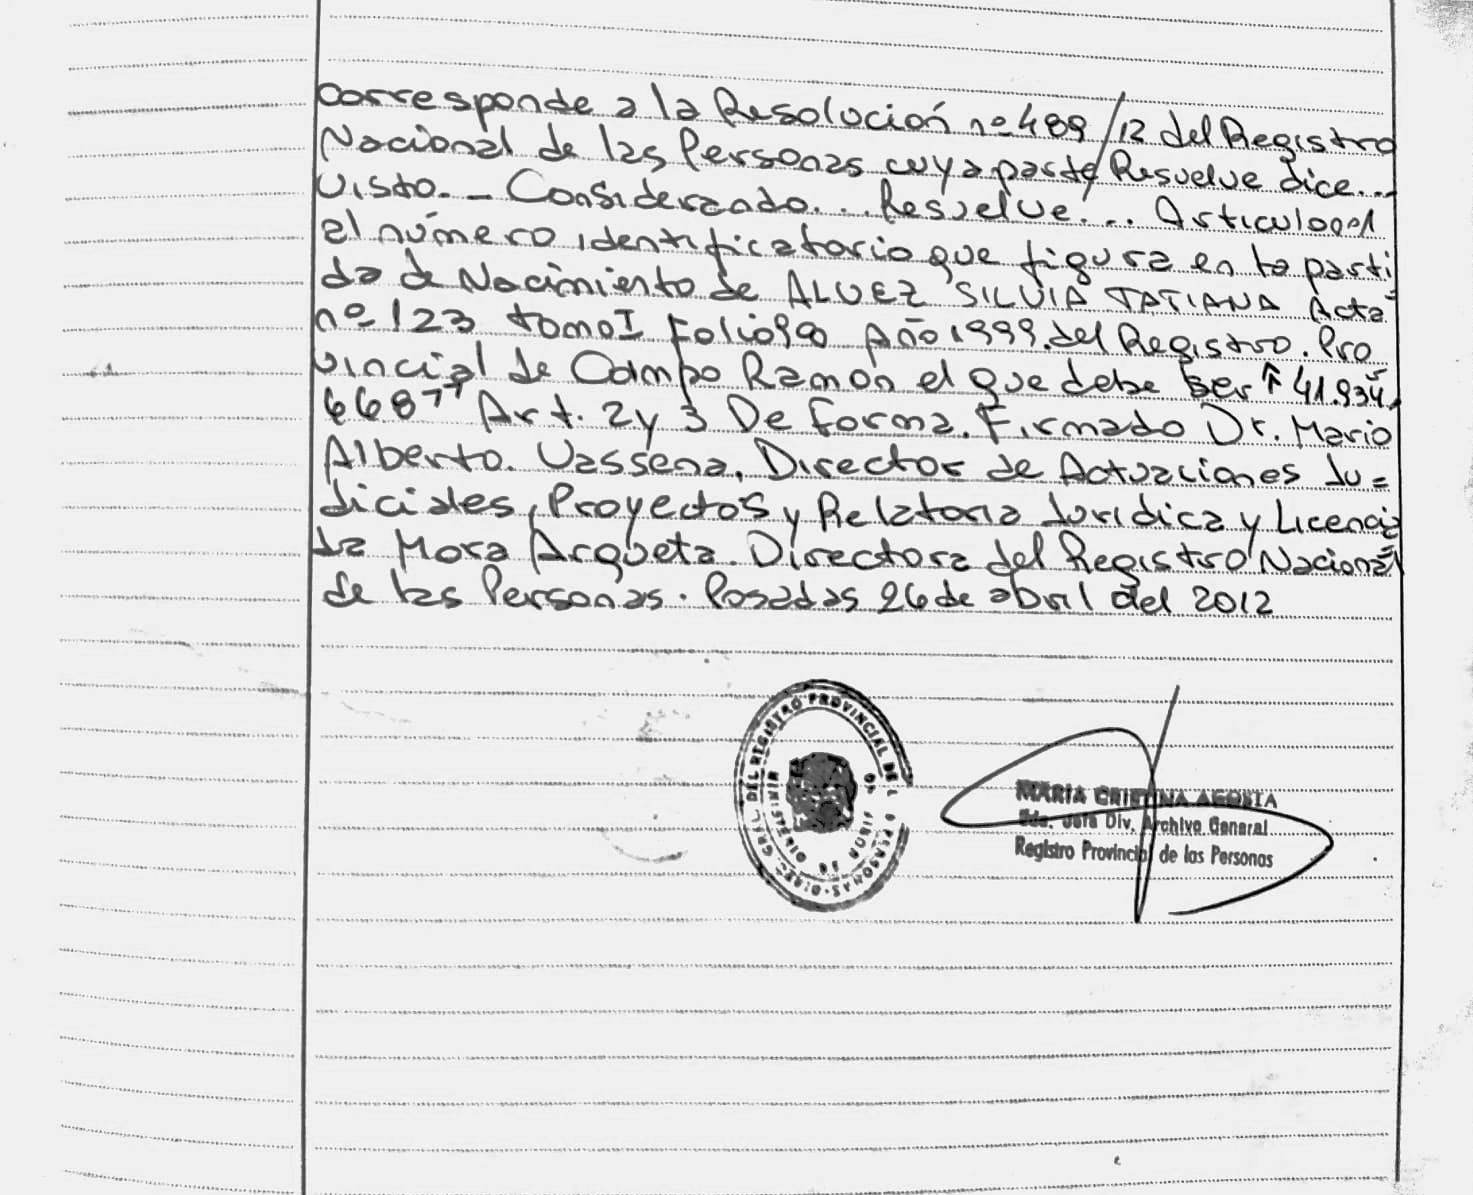 corresponde a la Resolución nº 489/12 del Registro
Nacional de las Personas cuya parte Resuelve dice...
Visto. - Considerando... Resuelve... Articulo
el número identificatorio que figura en la parti
da de Nacimiento de ALVEZ SILVIA TATIANA Acta
nº 123 tomo I Folio Año 1999. del Registro. Pro
vincial de Campo Ramón el que debe ser 41.934.
Art. 2 y 3 De forma. Firmado Dr. Mario
Alberto. Vassena, Director de Actuaciones Ju=
diciales, Proyectos y Relatoria Juridica y Licencia
da Mora Arqueta. Directora del Registro Nacional
de las Personas. Posadas 26 de abril del 2012
DEL REGISTRO PROVINCIAL DE L S PERSONAS · DIREC. GRAL.
MARIA CRISTINA ACOSTA
Jefa Div. Archivo General
Registro Provincial de las Personas